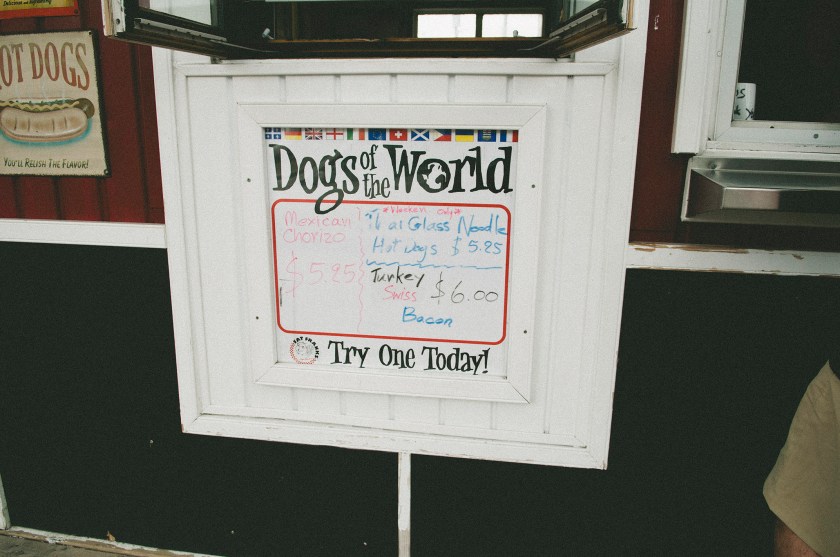 OT DOGS
YOU'LL RELISH THE FLAVOR!
Dogs of the World
Mexican
Chorizo
$5.25
Only
Thai Glass Noodle
Hot Dogs $5.25
Turkey
Swiss $6.00
Bacon
Try One Today!